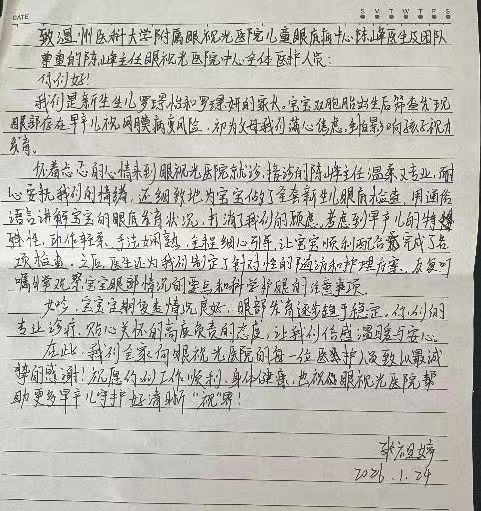 DATE
S M T W T F S
致温州医科大学附属眼视光医院儿童眼底病中心陈峰医生及团队
尊重的陈峰主任眼视光医院中心全体医护人员:
你们好!
我们是新生儿罗璟怡和罗璟妍的家长。宝宝双胞胎出生后筛查发现
眼部存在早产儿视网膜病变风险,初为父母我们满心焦虑,生怕影响孩子视力
发育。
怀着忐忑的心情来到眼视光医院就诊,接诊的陈峰主任温柔又专业,耐
心安抚我们的情绪,还细致地为宝宝做了全套新生儿眼底检查,用通俗
语言讲解宝宝的眼底发育状况,打消了我们的顾虑,考虑到早产儿的特
殊性,动作轻柔、手法娴熟,全程细心引导,让宝宝顺利配合完成了各
项检查。之后,医生还为我们制定了针对性的随访和护理方案,反复叮
嘱日常观察宝宝眼部情况的要点和科学护眼的注意事项。
如今,宝宝定期复查情况良好,眼部发育逐步趋于稳定。你们的
专业诊疗、贴心关怀的高度负责的态度,让我们倍感温暖与安心。
在此,我们全家向眼视光医院的每一位医护人员致以最诚
挚的感谢!祝愿你们工作顺利、身体健康,也祝愿眼视光医院帮
助更多早产儿守护好清晰"视"界!
张祖婷
2026.1.24